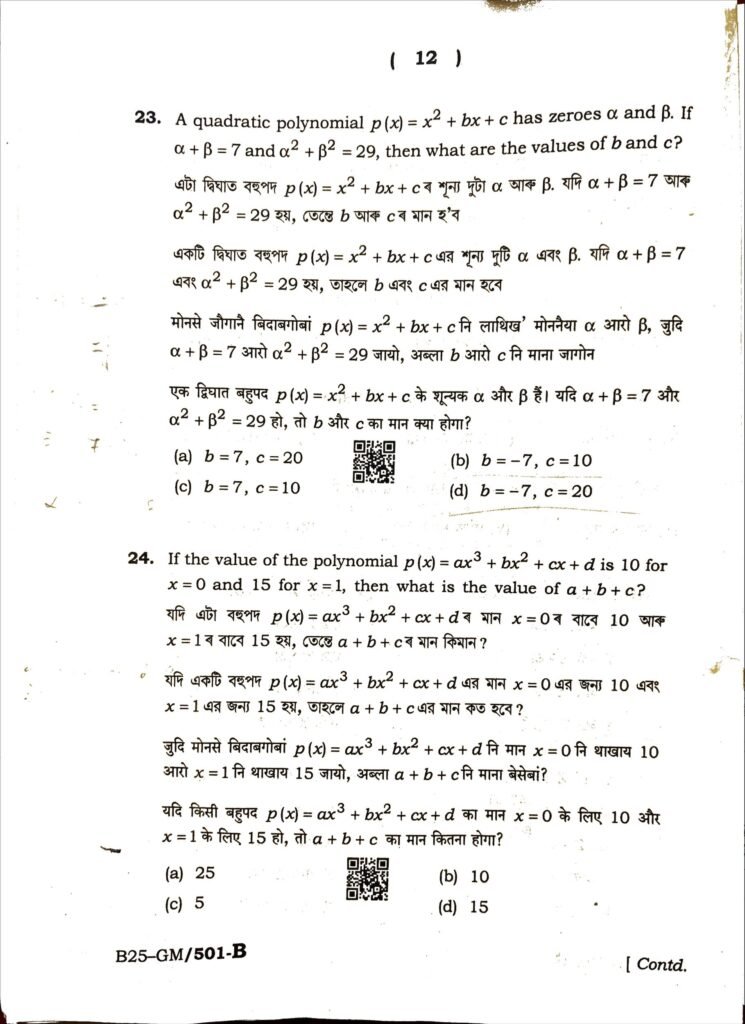 ( 12 )
23. A quadratic polynomial p(x) = x² + bx + c has zeroes α and β. If
α + β = 7 and α² + β² = 29, then what are the values of b and c?
এটা দ্বিঘাত বহুপদ p(x) = x² + bx + cৰ শূন্য দুটা α আৰু β. যদি α + β = 7 আৰু
α² + β² = 29 হয়, তেন্তে b আৰু cৰ মান হ'ব
একটি দ্বিঘাত বহুপদ p(x) = x² + bx + c এর শূন্য দুটি α এবং β. যদি α + β = 7
এবং α² + β² = 29 হয়, তাহলে b এবং c এর মান হবে
मोनसे जौगानै बिदाबगोबां p(x) = x² + bx + c नि लाथिख' मोननैया α आरो β, जुदि
α + β = 7 आरो α² + β² = 29 जायो, अब्ला b आरो c नि माना जागोन
एक द्विघात बहुपद p(x) = x² + bx + c के शून्यक α और β हैं। यदि α + β = 7 और
α² + β² = 29 हो, तो b और c का मान क्या होगा?
(a) b = 7, c = 20 (b) b = −7, c = 10
(c) b = 7, c = 10 (d) b = −7, c = 20
24. If the value of the polynomial p(x) = ax³ + bx² + cx + d is 10 for
x = 0 and 15 for x = 1, then what is the value of a + b + c?
যদি এটা বহুপদ p(x) = ax³ + bx² + cx + dৰ মান x = 0ৰ বাবে 10 আৰু
x = 1ৰ বাবে 15 হয়, তেন্তে a + b + cৰ মান কিমান?
যদি একটি বহুপদ p(x) = ax³ + bx² + cx + d এর মান x = 0 এর জন্য 10 এবং
x = 1 এর জন্য 15 হয়, তাহলে a + b + c এর মান কত হবে?
जुदि मोनसे बिदाबगोबां p(x) = ax³ + bx² + cx + d नि मान x = 0 नि थाखाय 10
आरो x = 1 नि थाखाय 15 जायो, अब्ला a + b + c नि माना बेसेबां?
यदि किसी बहुपद p(x) = ax³ + bx² + cx + d का मान x = 0 के लिए 10 और
x = 1 के लिए 15 हो, तो a + b + c का मान कितना होगा?
(a) 25 (b) 10
(c) 5 (d) 15
B25–GM/501-B
[ Contd.